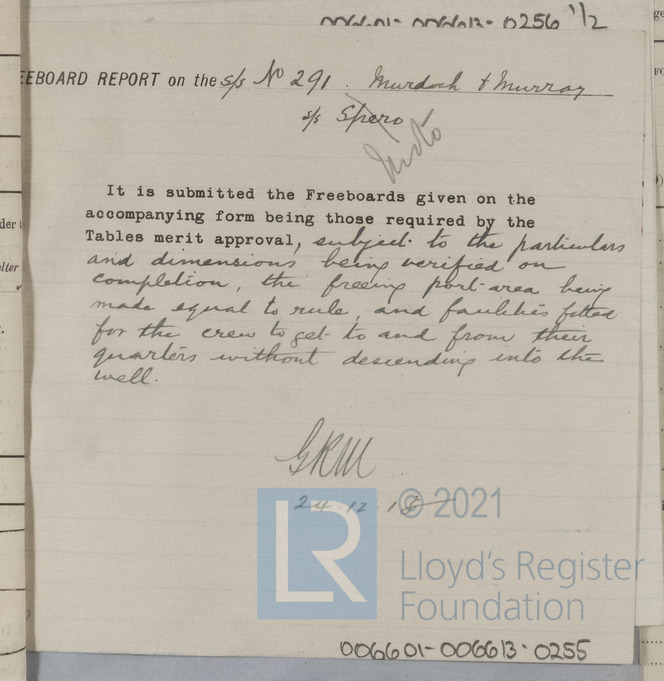 006601-006613-0256 1/2
EEBOARD REPORT on the s/s No 291. Murdoch & Murray
s/s Spero
It is submitted the Freeboards given on the
accompanying form being those required by the
Tables merit approval, subject to the particulars
and dimensions being verified on
completion, the freeing port area being
made equal to rule, and facilities fitted
for the crew to get to and from their
quarters without descending into the
well.
GRM
24.12.18
LR © 2021
Lloyd's Register
Foundation
006601-006613-0255